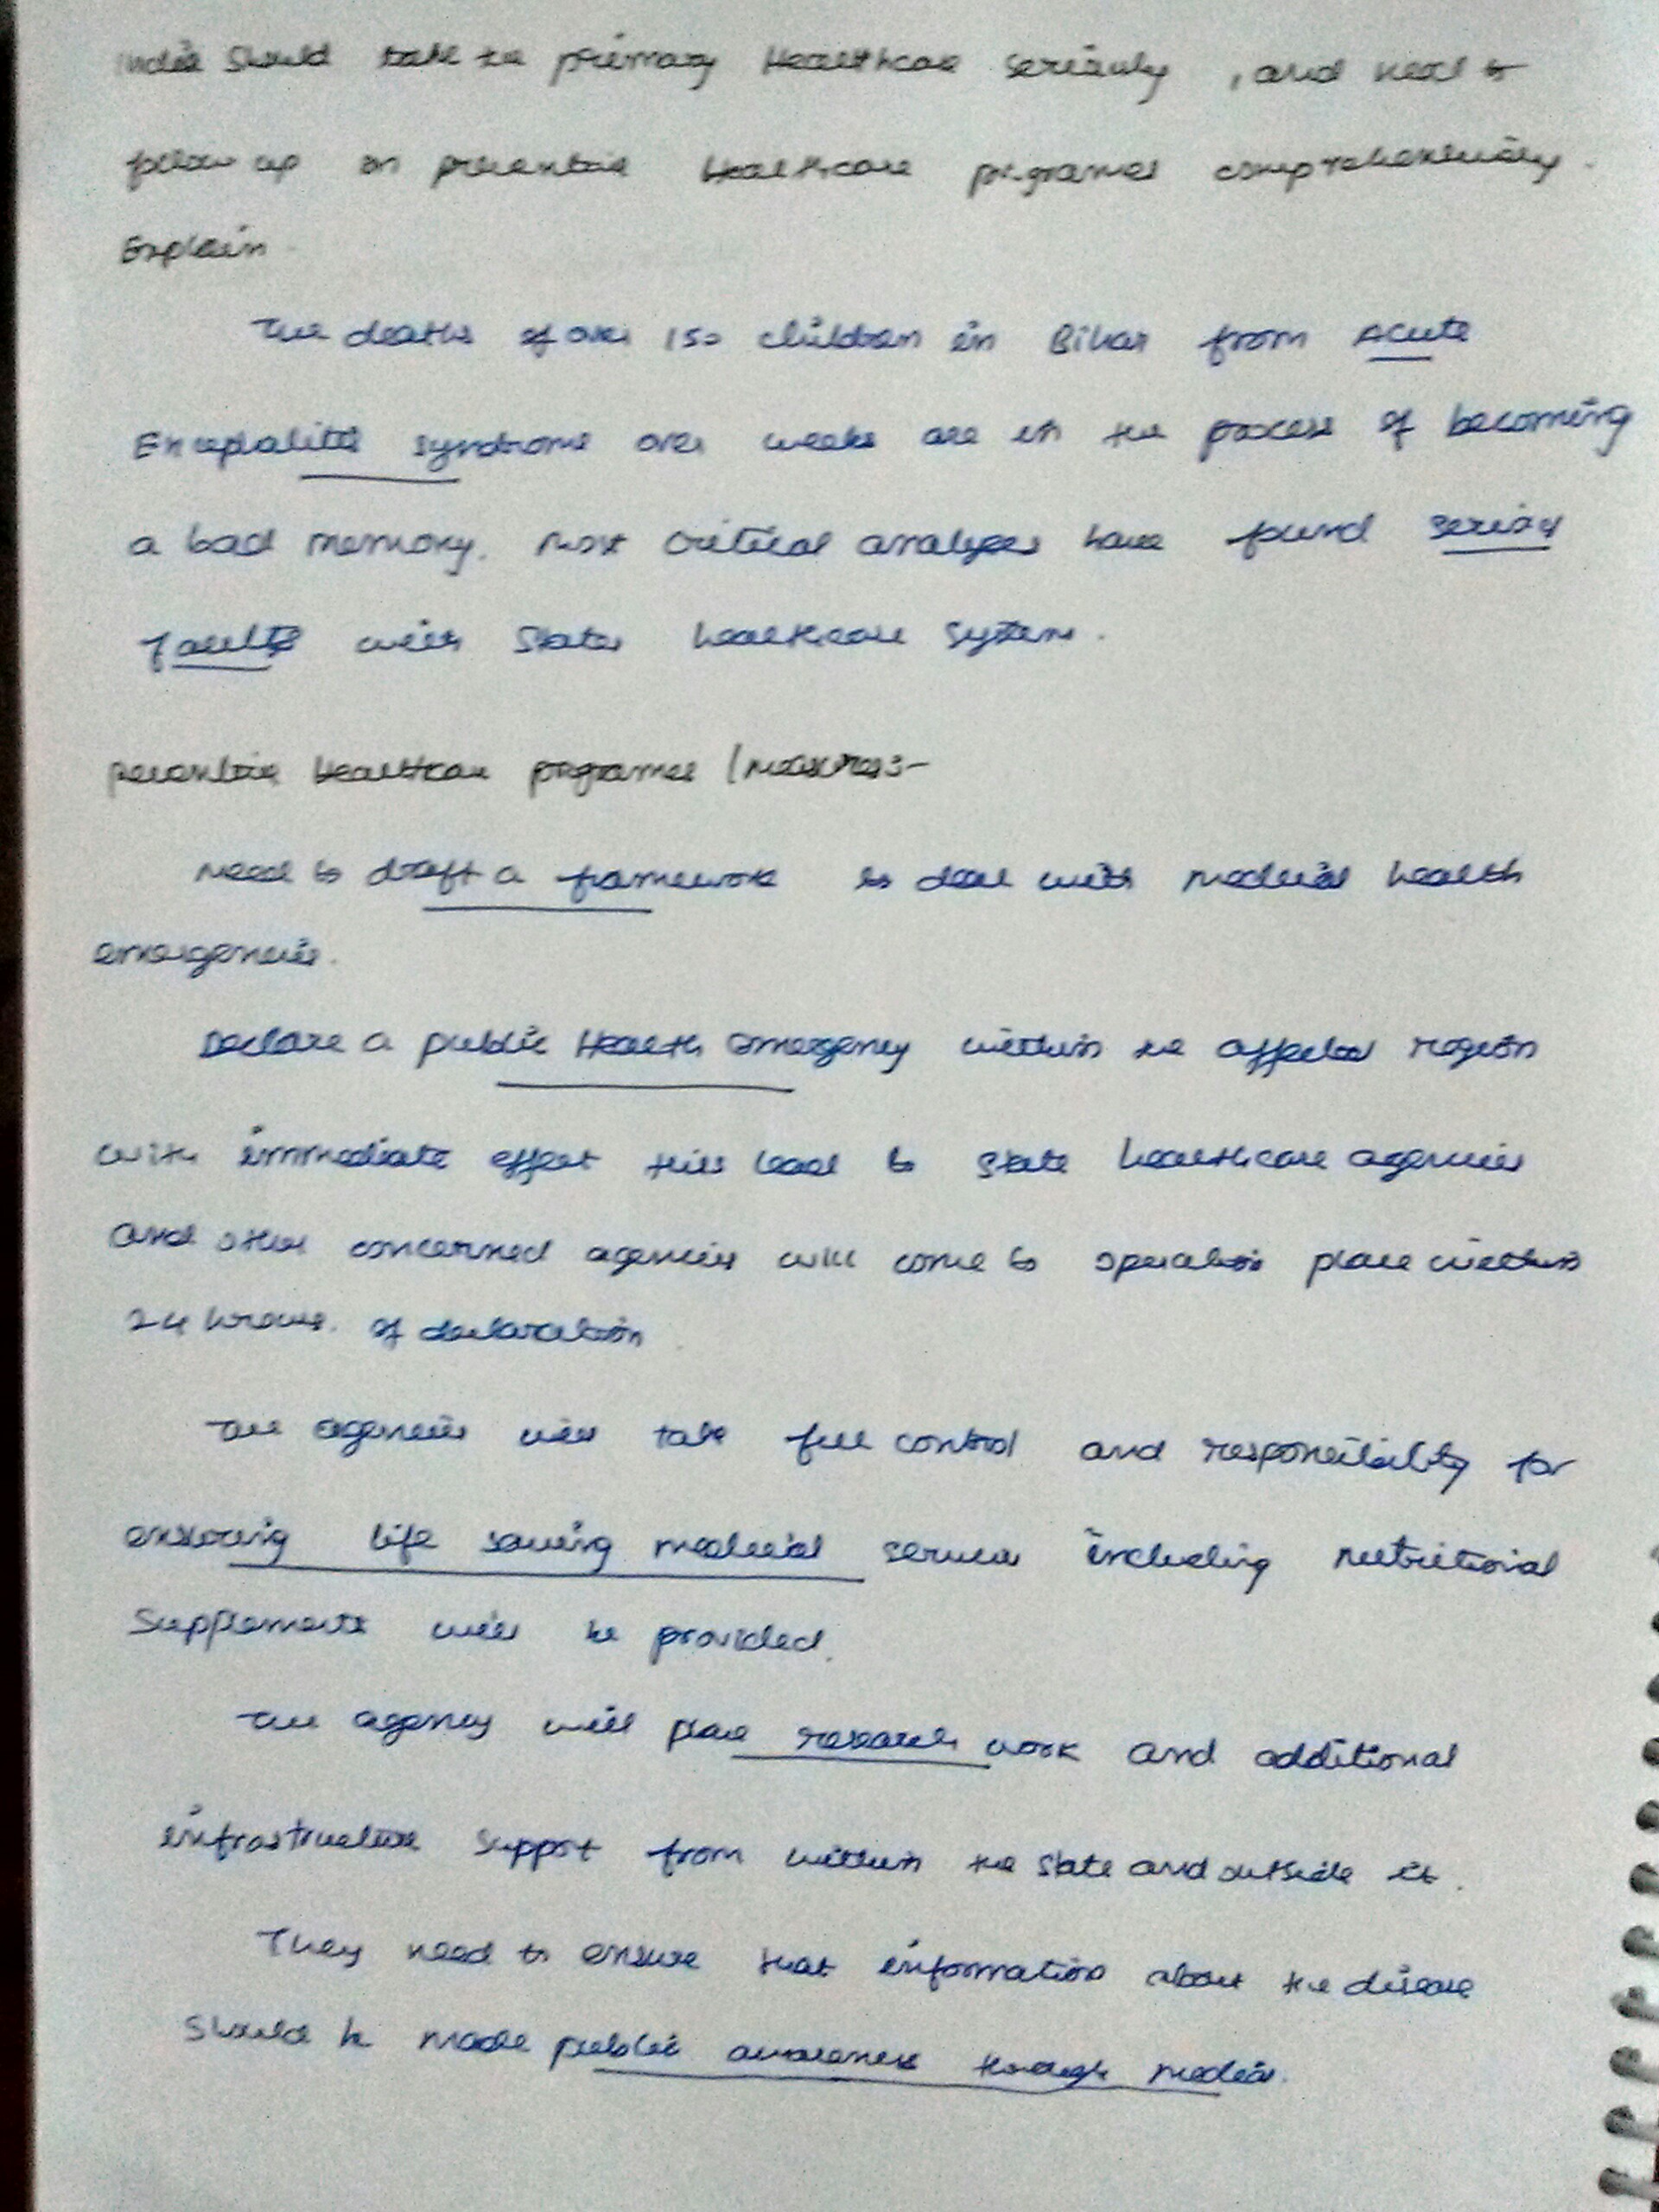 India should take the primary Healthcare seriously , and need to
follow up on preventive Healthcare programes comprehensively.
Explain
The deaths of over 150 children in Bihar from Acute
Encephalitis syndrome over weeks are in the process of becoming
a bad memory. Most critical analyses have found serious
faults with States healthcare system.
preventive Healthcare programes / measures:-
Need to draft a framework to deal with medical health
emergencies.
Declare a public Health emergency within the affected region
with immediate effect this lead to state healthcare agencies
and other concerned agencies will come to operation place within
24 hrours. of declaration
The agencies will take full control and responsibility for
ensuring life saving medical services including nutritional
supplements will be provided.
The agency will place research work and additional
infrastructure support from within the state and outside it.
They need to ensure that information about the disease
should be made public awareness through media.